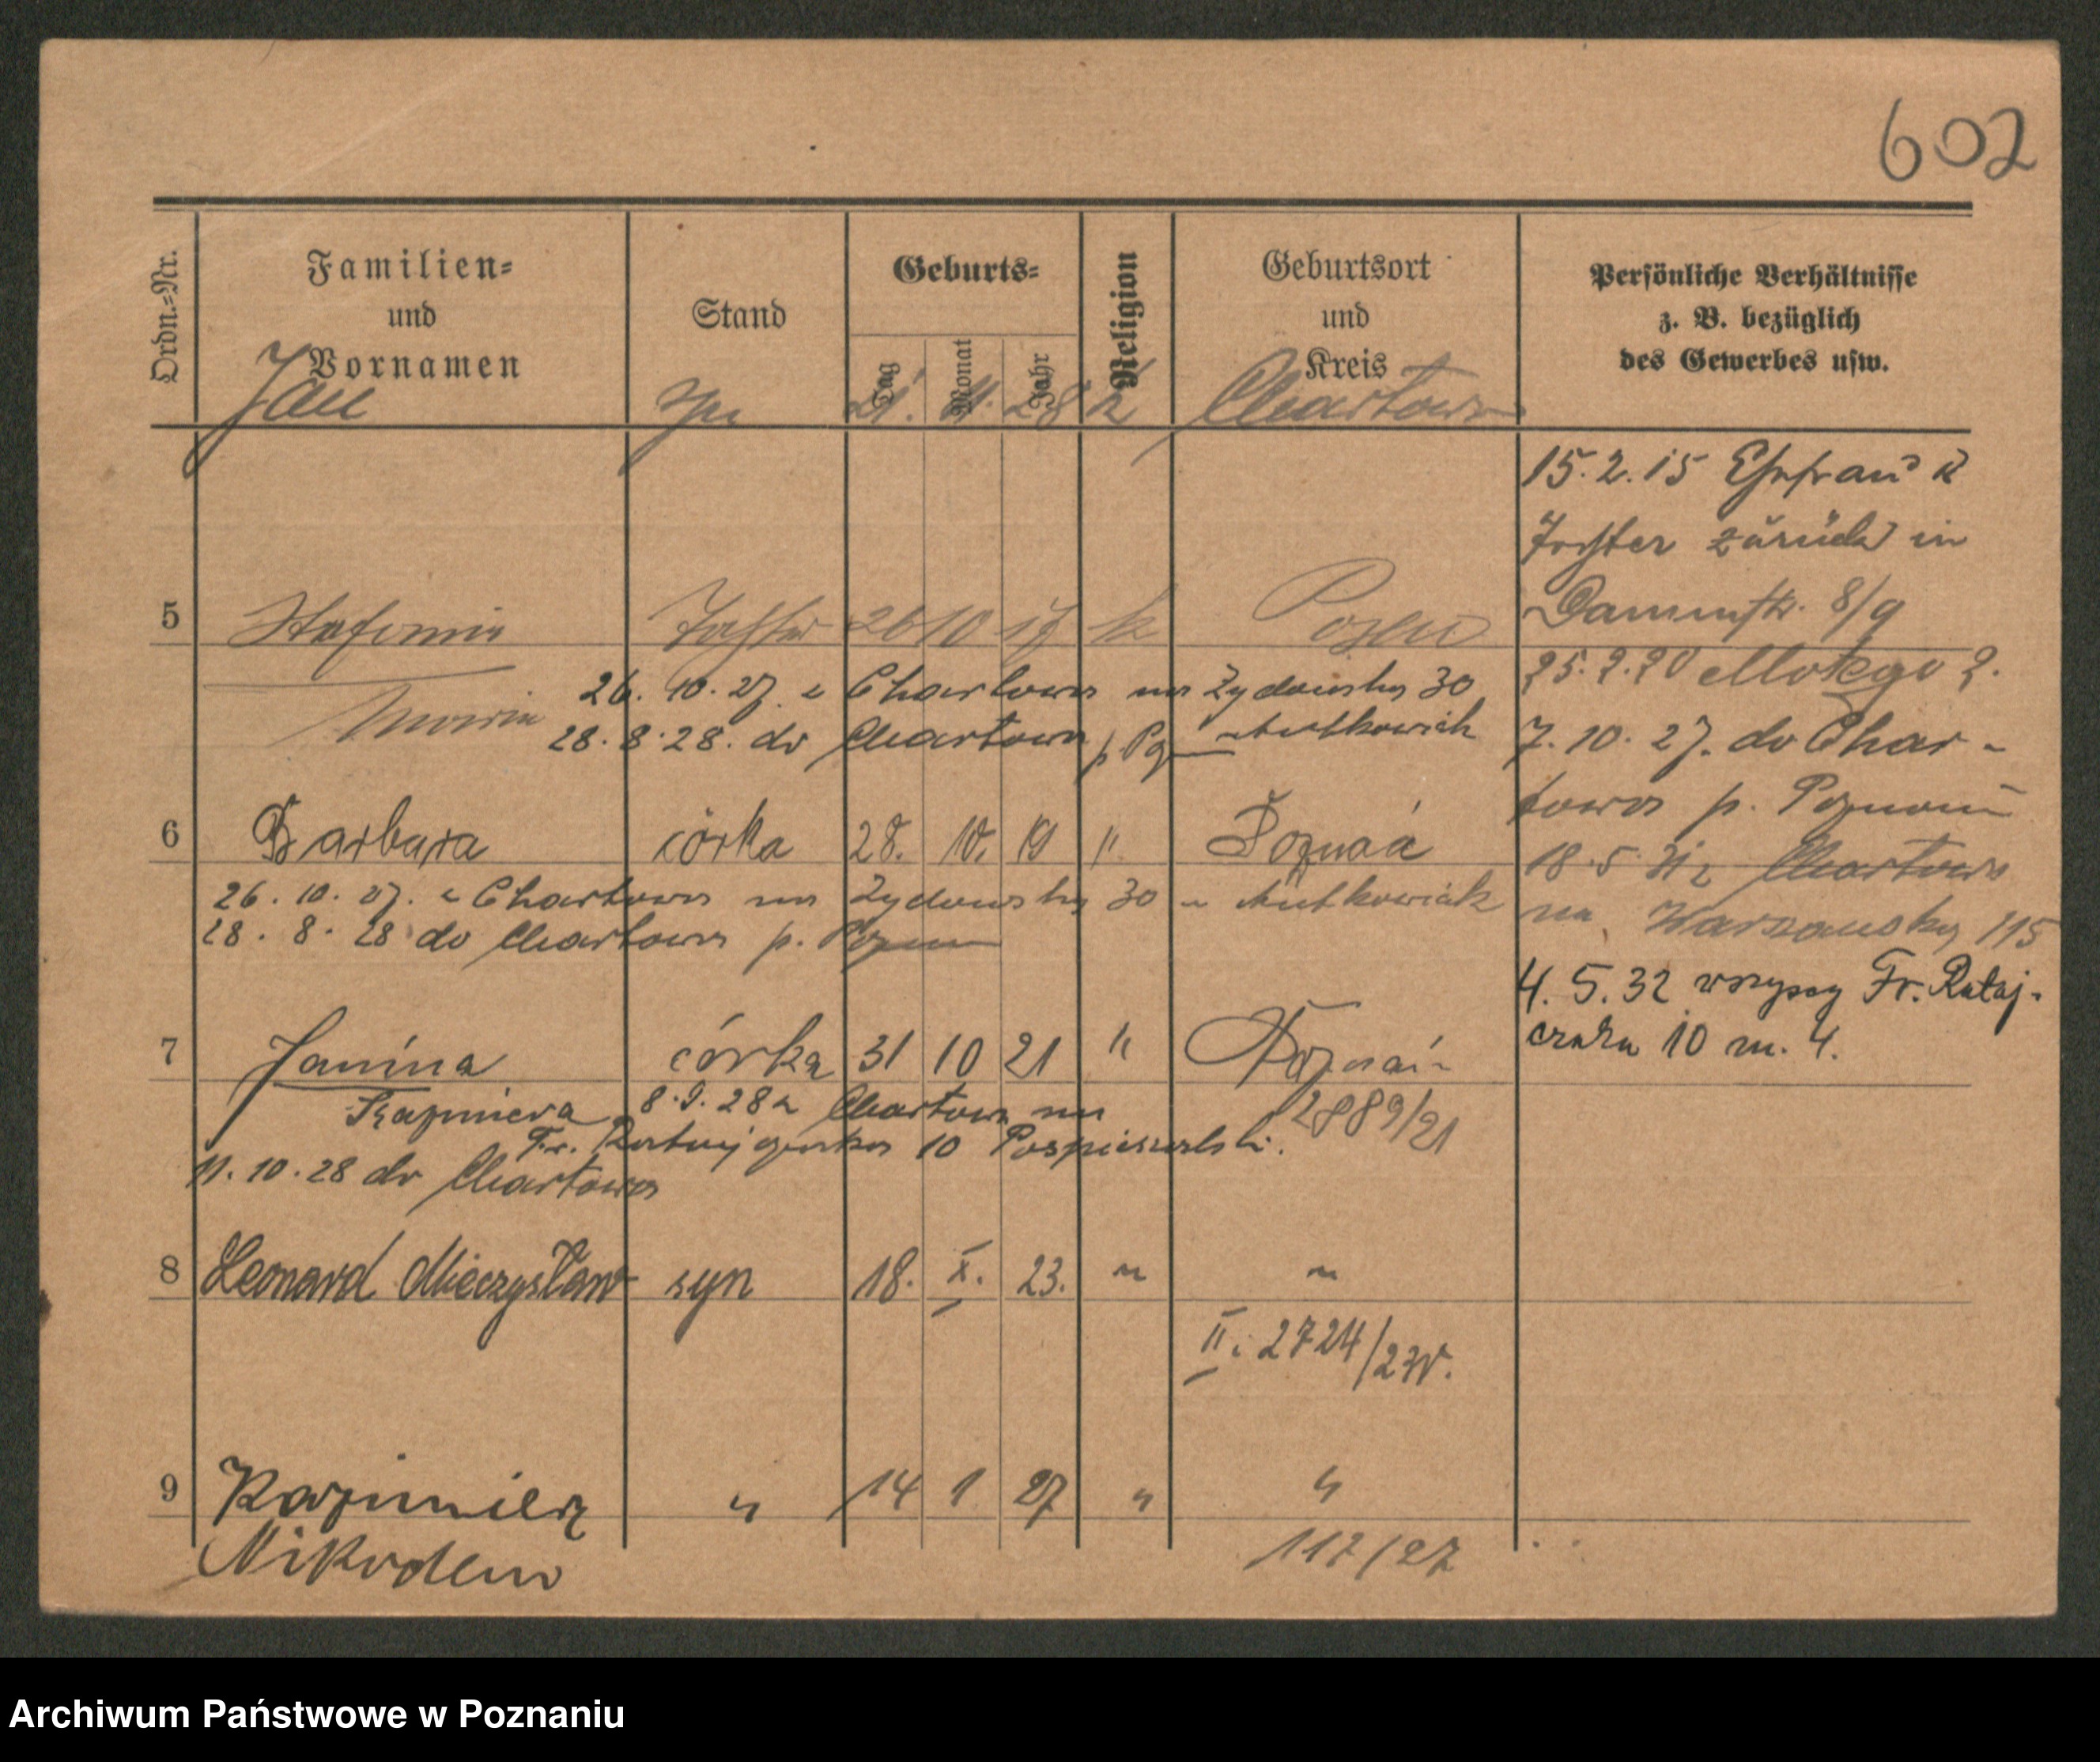 602
Ordn.-Nr.
Familien- und Vornamen
Stand
Geburts-
Tag
Monat
Jahr
Religion
Geburtsort und Kreis
Persönliche Verhältnisse
z. B. bezüglich
des Gewerbes usw.
Jan syn 21. 11. 28 k Chartowo
15.2.15 Ehefrau u
Tochter zurück in
Dammstr. 8/9
5 Stefania Tochter 26 10 17 k Posen
Maria
26. 10. 27. z Chartowa na Żydowską 30
28. 8. 28. do Chartowa p. Poz
25.2.20 Małego 2.
7. 10. 27. do Char-
towa p. Poznań
18. 5. 31 z Chartowa
na Warszawską 115
4. 5. 32 wszyscy Fr. Rataj-
czaka 10 m. 4.
6 Barbara córka 28. 10. 19 " Poznań
26. 10. 27. z Chartowa na Żydowską 30
28. 8. 28 do Chartowa p. Poznań
7 Janina córka 31 10 21 " Poznań
Kazimiera 8. 9. 28 z Chartowa na
2889/21
Fr. Ratajczaka 10 Pospieszalski.
11. 10. 28 do Chartowa
8 Leonard Mieczysław syn 18. X. 23. " "
II. 2724/23
9 Kazimierz " 14 1 27 " "
Nikodem
117/27
Archiwum Państwowe w Poznaniu